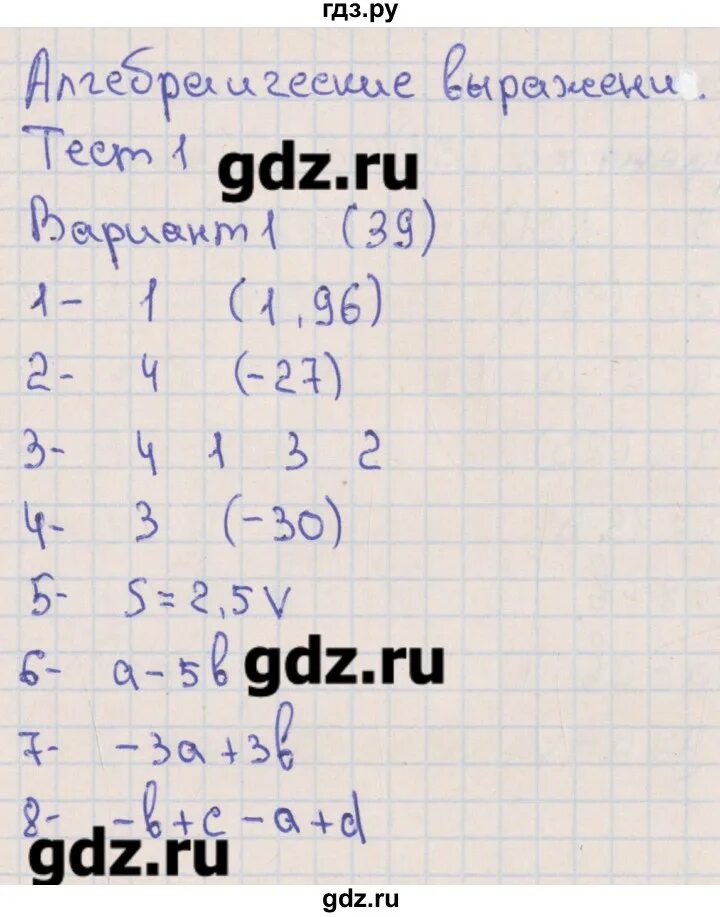 гдз.ру
Алгебраические выражени .
Тест 1
gdz.ru
Вариант 1 (39)
1- 1 (1,96)
2- 4 (-27)
3- 4 1 3 2
4- 3 (-30)
5- S = 2,5V
6- a - 5b
gdz.ru
7- -3a + 3b
8- -b + c - a + d
gdz.ru
gdz.ru